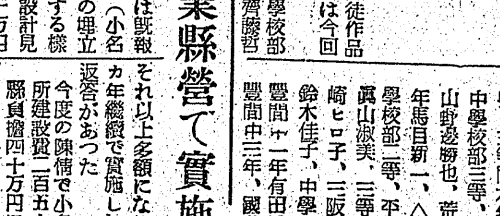 中學校部三等、
山野邊勝也、荒
年馬目新一、△
學校部二等、平
眞山淑美、三等
崎ヒロ子、三阪
鈴木佳子、中學
豐間廾一年有田
豐間中三年、國
徒作品
は今回
學校部
齊藤哲
業縣營で實施
それ以上多額にな
カ年繼續で實施し
返答があつた
今度の陳情で小
所建設費二百五十
縣負擔四十万円
は既報
（小名
の埋立
する樣
設計見